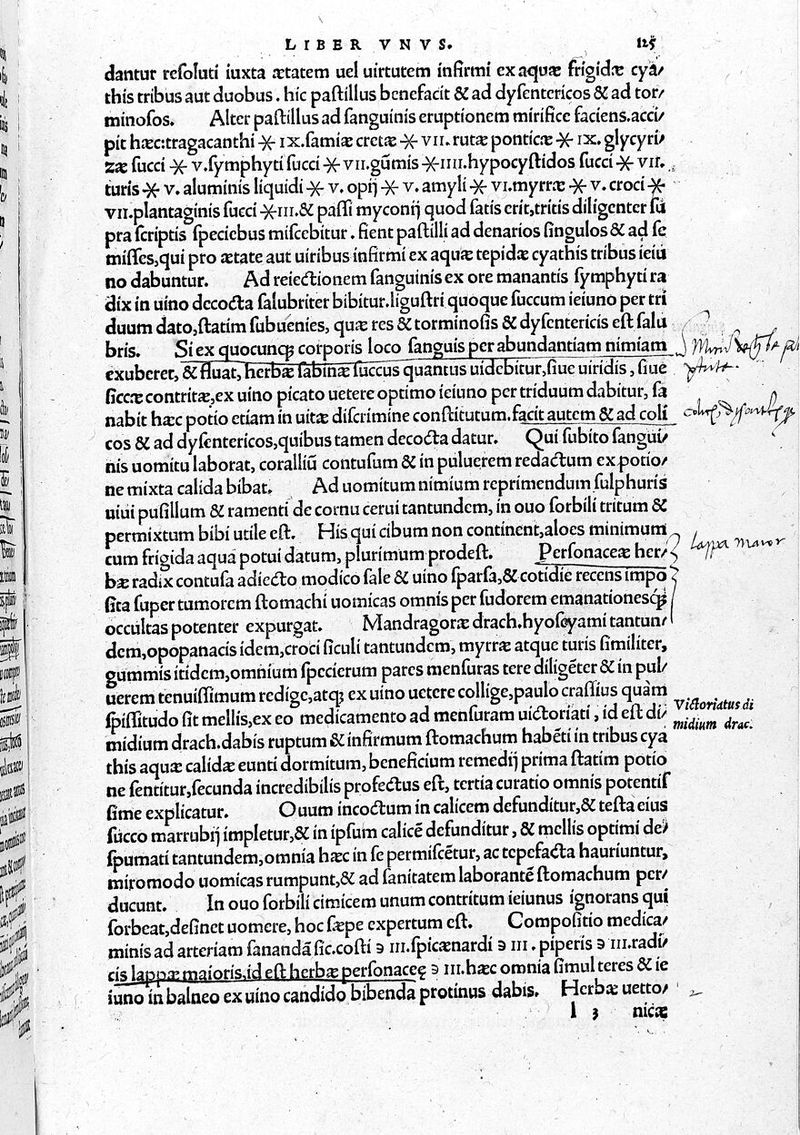 LIBER VNVS. 125
dantur resoluti iuxta ætatem uel uirtutem infirmi ex aquæ frigidæ cya/
this tribus aut duobus. hic pastillus benefacit & ad dysentericos & ad tor/
minosos. Alter pastillus ad sanguinis eruptionem mirifice faciens. acci/
pit hæc: tragacanthi ⚹ IX. samiæ cretæ ⚹ VII. rutæ ponticæ ⚹ IX. glycyri/
zæ succi ⚹ V. symphyti succi ⚹ VII. gūmis ⚹ IIII. hypocystidos succi ⚹ VII.
turis ⚹ V. aluminis liquidi ⚹ V. opij ⚹ V. amyli ⚹ VI. myrræ ⚹ V. croci ⚹
VII. plantaginis succi ⚹ III. & passi myconij quod satis erit, tritis diligenter su
pra scriptis speciebus miscebitur. fient pastilli ad denarios singulos & ad se
misses, qui pro ætate aut uiribus infirmi ex aquæ tepidæ cyathis tribus ieiu
no dabuntur. Ad reiectionem sanguinis ex ore manantis symphyti ra
dix in uino decocta salubriter bibitur. ligustri quoque succum ieiuno per tri
duum dato, statim subuenies, quæ res & torminosis & dysentericis est salu
bris. Si ex quocunq; corporis loco sanguis per abundantiam nimiam
exuberet, & fluat, herbæ sabinæ succus quantus uidebitur, siue uiridis, siue
siccæ contritæ, ex uino picato uetere optimo ieiuno per triduum dabitur, sa
nabit hæc potio etiam in uitæ discrimine constitutum. facit autem & ad coli
cos & ad dysentericos, quibus tamen decocta datur. Qui subito sangui/
nis uomitu laborat, coralliū contusum & in puluerem redactum ex potio/
ne mixta calida bibat. Ad uomitum nimium reprimendum sulphuris
uiui pusillum & ramenti de cornu cerui tantundem, in ouo sorbili tritum &
permixtum bibi utile est. His qui cibum non continent, aloes minimum
cum frigida aqua potui datum, plurimum prodest. Personaceæ her/
bæ radix contusa adiecto modico sale & uino sparsa, & cotidie recens impo
sita super tumorem stomachi uomicas omnis per sudorem emanationesq;
occultas potenter expurgat. Mandragoræ drach. hyoscyami tantun/
dem, opopanacis idem, croci siculi tantundem, myrræ atque turis similiter,
gummis itidem, omnium specierum pares mensuras tere diligēter & in pul/
uerem tenuissimum redige, atq; ex uino uetere collige, paulo crassius quàm
spissitudo sit mellis, ex eo medicamento ad mensuram uictoriati, id est di/
midium drach. dabis ruptum & infirmum stomachum habēti in tribus cya
this aquæ calidæ eunti dormitum, beneficium remedij prima statim potio
ne sentitur, secunda incredibilis profectus est, tertia curatio omnis potentis
sime explicatur. Ouum incoctum in calicem defunditur, & testa eius
succo marrubij impletur, & in ipsum calicē defunditur, & mellis optimi de/
spumati tantundem, omnia hæc in se permiscētur, ac tepefacta hauriuntur,
miromodo uomicas rumpunt, & ad sanitatem laborantē stomachum per/
ducunt. In ouo sorbili cimicem unum contritum ieiunus ignorans qui
sorbeat, desinet uomere, hoc sæpe expertum est. Compositio medica/
minis ad arteriam sanandā sic. costi ℈ III. spicænardi ℈ III. piperis ℈ III. radi/
cis lappæ maioris. id est herbæ personaceę ℈ III. hæc omnia simul teres & ie
iuno in balneo ex uino candido bibenda protinus dabis. Herbæ uetto/
l 3 nicæ
lappa maior
Victoriatus di
midium drac.